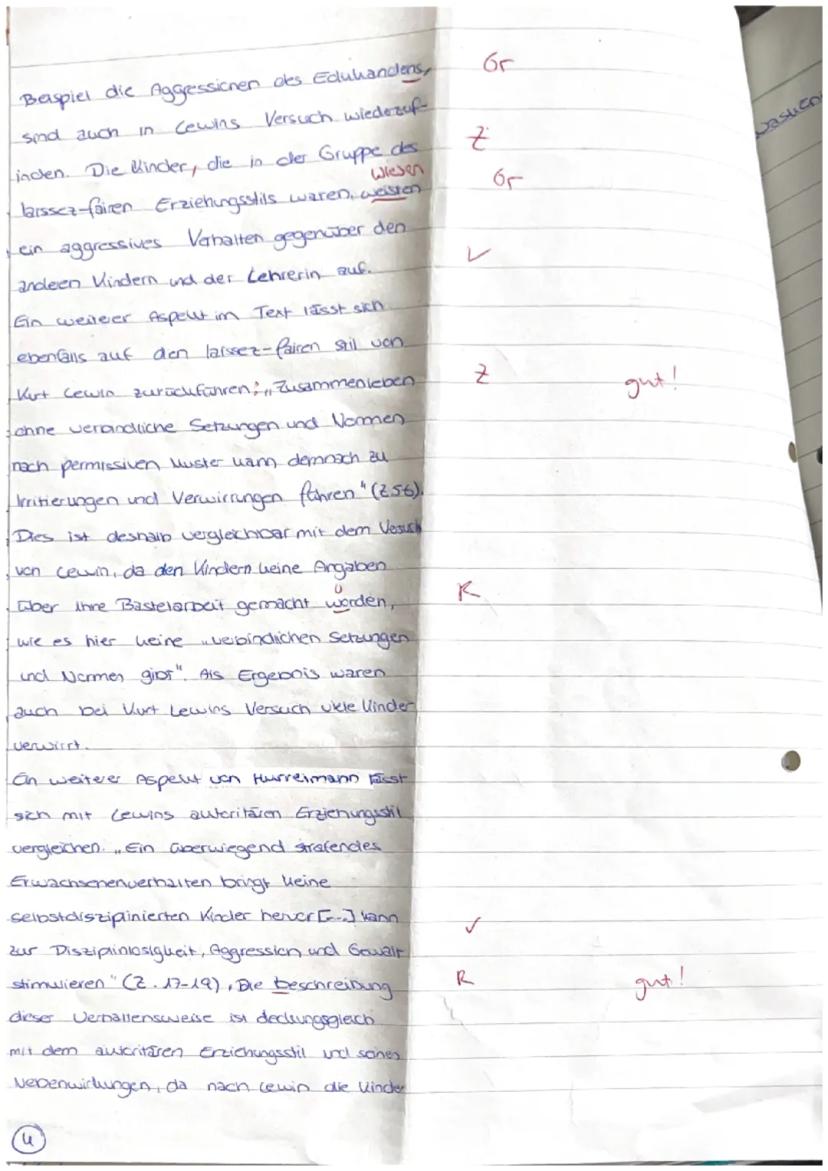 Beispiel die Aggressionen des Edukandens, Gr
sind auch in Lewins Versuch wiederzuf-
inden. Die Kinder, die in der Gruppe des Z
wiesen
laissez-fairen Erziehungsstils waren, weisten Gr
ein aggressives Verhalten gegenüber den
anderen Kindern und der Lehrerin auf. ✓
Ein weiterer Aspekt im Text lässt sich
ebenfalls auf den laissez-fairen Stil von
Kurt Lewin zurückführen: „Zusammenleben Z gut!
ohne verbindliche Setzungen und Normen
nach permissiven Muster kann demnach zu
Irritierungen und Verwirrungen führen" (Z.56).
Dies ist deshalb vergleichbar mit dem Versuch
von Lewin, da den Kindern keine Angaben
ü
über ihre Bastelarbeit gemacht worden, R
wie es hier keine „verbindlichen Setzungen
und Normen gibt". Als Ergebnis waren
auch bei Kurt Lewins Versuch viele Kinder
verwirrt.
Ein weiterer Aspekt von Hurrelmann lässt
sich mit Lewins autoritären Erziehungsstil
vergleichen. „Ein überwiegend strafendes
Erwachsenenverhalten bringt keine
selbstdisziplinierten Kinder hervor [...] kann ✓
zur Disziplinlosigkeit, Aggression und Gewalt
stimulieren" (Z. 17-19). Die beschreibung R gut!
dieser Verhaltensweise ist deckungsgleich
mit dem autoritären Erziehungsstil und seinen
Nebenwirkungen, da nach Lewin die Kinder
4